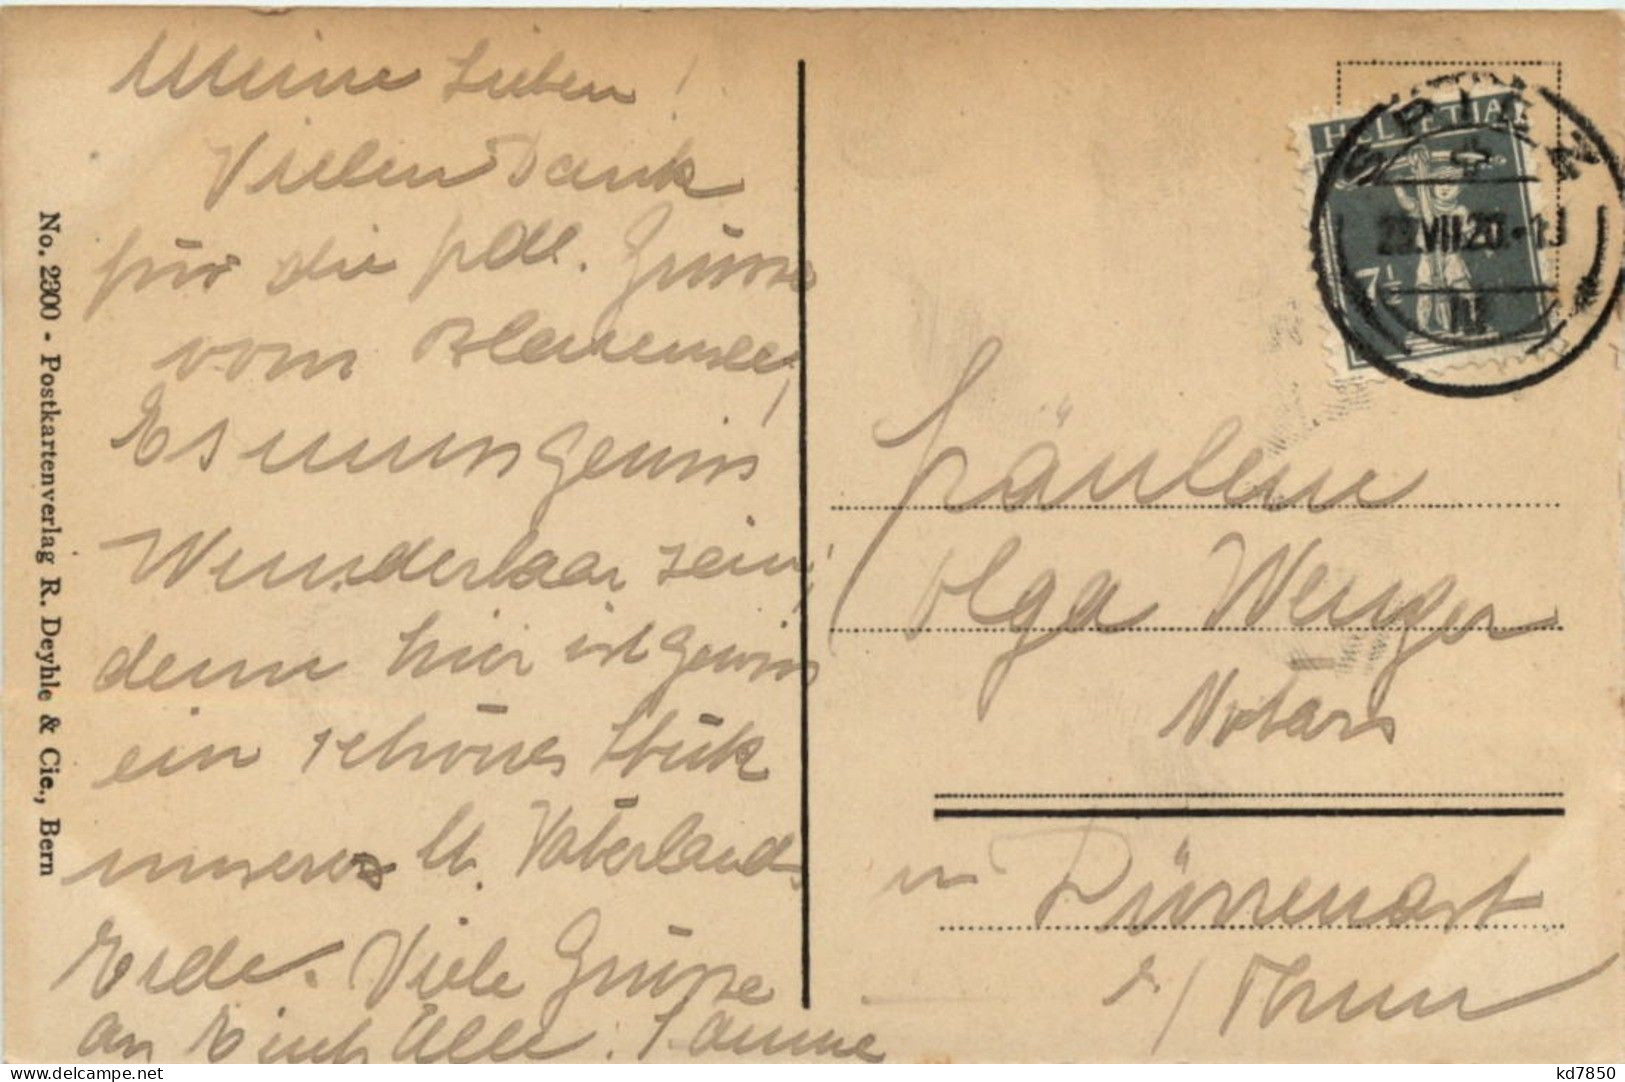 Meine Lieben!
Vielen Dank
für die frdl. Grüsse
vom Blausee,
Es muss gewiss
Wunderbar sein,
denn hier ist gewiss
ein schönes Stück
unseres lb. Vaterlands
Erde. Viele Grüsse
an Euch Alle.
No. 2300 - Postkartenverlag R. Deyhle & Cie., Bern
SPIEZ
VII.20.
HELVETIA
7½
Fräulein
Olga Wenger
Notars
in Dürrenast
b/Thun
delcampe.net
kd7850